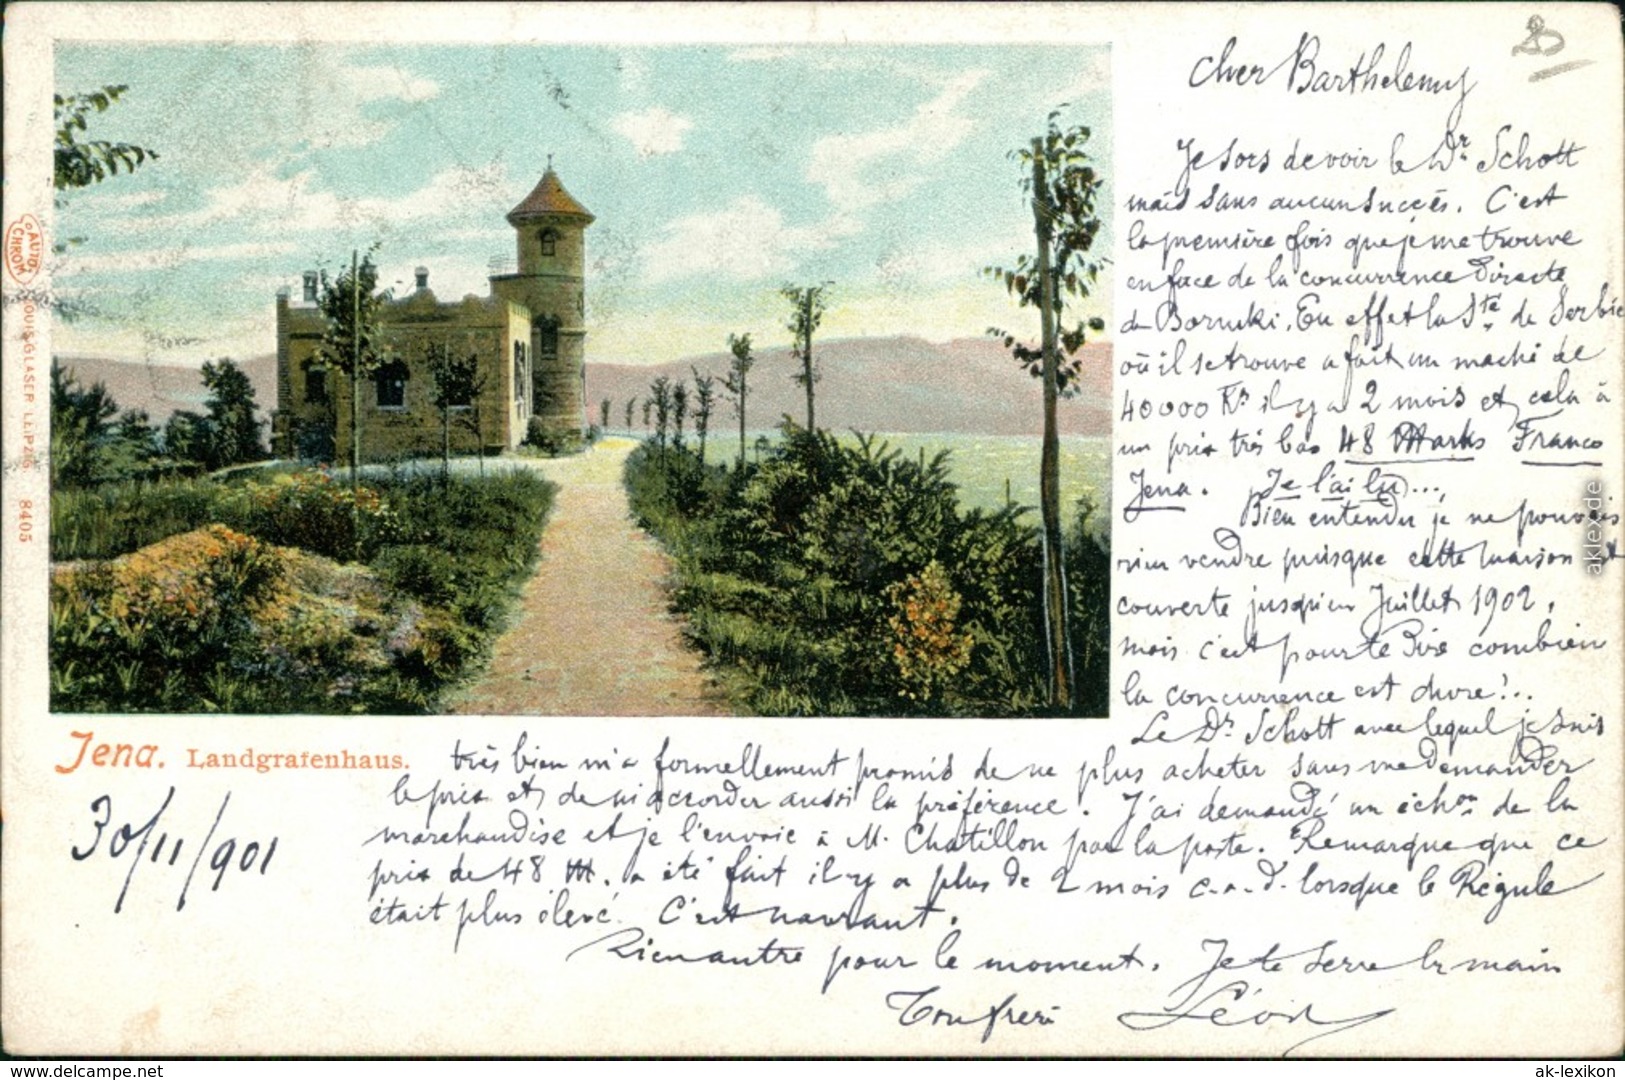 Cher Barthelemy
Je sors de voir le Dr Schott
mais sans aucun succès. C'est
la première fois que je me trouve
en face de la concurrence directe
de. En effet la Sté de Serbie
où il se trouve a fait un maché de
40000 Ks il y a 2 mois et cela à
un prix très bas 48 Marks Franco
Jena. Je l'ai lu...
Bien entendu je ne pouvais
rien vendre puisque cette maison est
couverte jusqu'en Juillet 1902,
mais c'est pour te dire combien
la concurrence est dure!..
Le Dr Schott avec lequel je suis
très bien m'a formellement promis de ne plus acheter sans me demander
le prix et de m'accorder aussi la préférence. J'ai demandé un échon de la
marchandise et je l'envoie à M. Chatillon par la poste. Remarque que ce
prix de 48 M. a été fait il y a plus de 2 mois c.a.d. lorsque le Régule
était plus élevé. C'est navrant.
Rien autre pour le moment. Je te serre la main
Ton frère Léon
Jena. Landgrafenhaus.
30/11/901
AUTO-CHROM
LOUIS GLASER LEIPZIG 8405
aklex.de
www.ak-lexikon.de
ak-lexikon